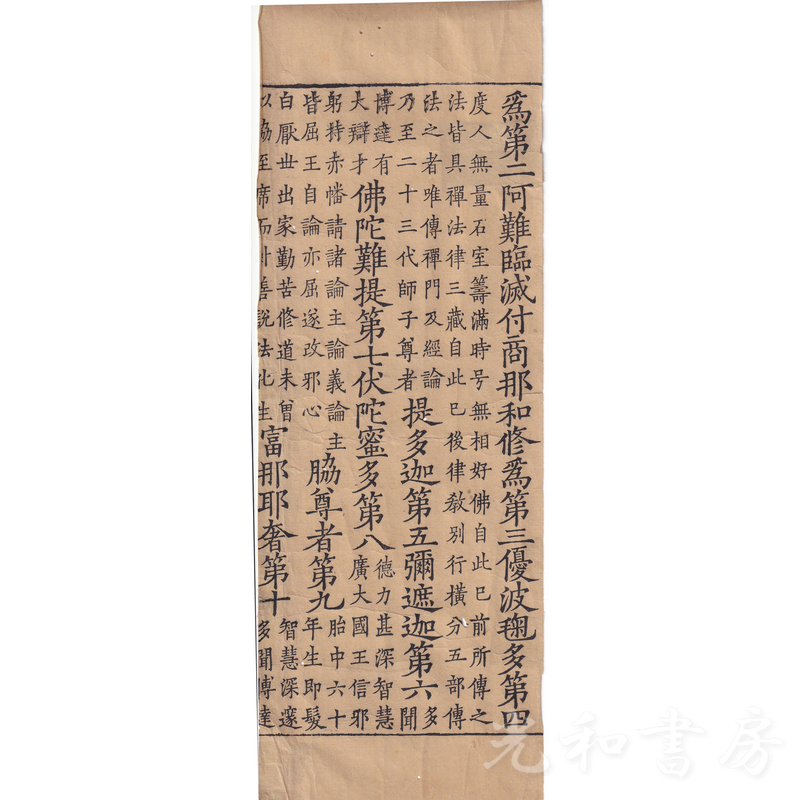 爲第二阿難臨滅付商那和修爲第三優波毱多第四
度人無量石室籌滿時号無相好佛自此已前所傳之
法皆具禪法律三藏自此已後律敎别行橫分五部傳
法之者唯傳禪門及經論
乃至二十三代師子尊者
提多迦第五彌遮迦第六
多
聞
博達有
大辯才
佛陀難提第七伏陀蜜多第八
德力甚深智慧
廣大國王信邪
躬持赤幡請諸論主論義論主
皆屈王自論亦屈遂改邪心
脇尊者第九
胎中六十
年生即髮
白厭世出家勤苦修道未曾
以脇至席而善說法化生
富那耶奢第十
智慧深邃
多聞博達
光和書房